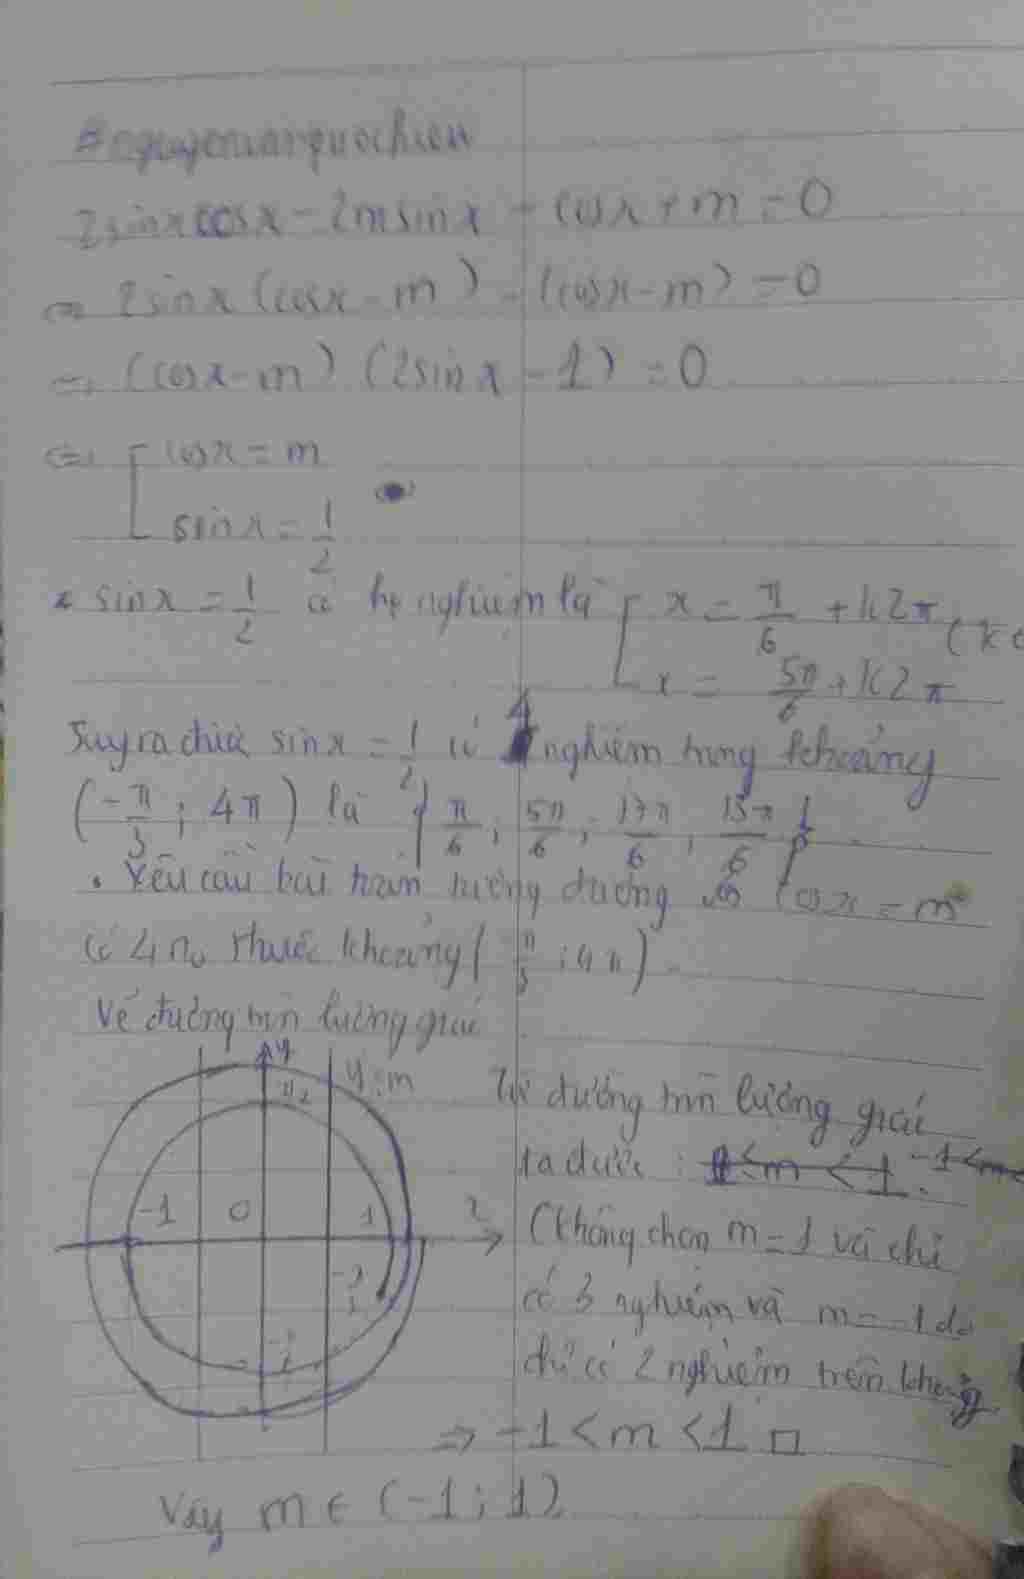 2sinxcosx - 2msinx - cosx + m = 0
⇔ 2sinx (cosx - m) - (cosx - m) = 0
⇔ (cosx - m) (2sinx - 1) = 0
⇔ [ cosx = m
sinx = 1/2
* sinx = 1/2 có họ nghiệm là [ x = π/6 + k2π (k∈
x = 5π/6 + k2π
Suy ra chiẻ sinx = 1/2 có 4 nghiệm trong khoảng
(-π/3 ; 4π) là { π/6 ; 5π/6 ; 13π/6 ; 17π/6 }
• Yêu cầu bài toán tương đương với cosx = m
có 4 no thuộc khoảng (-π/3 ; 4π)
Vẽ đường tròn lượng giác
y
y=m
π/2
-1 0 1
Từ đường tròn lượng giác
ta được : -1 < m < 1 -1 < m <
(không chọn m = 1 vì chỉ
có 3 nghiệm và m = -1 do
chỉ có 2 nghiệm trên khoảng
⇒ -1 < m < 1 □
Vậy m ∈ (-1 ; 1)